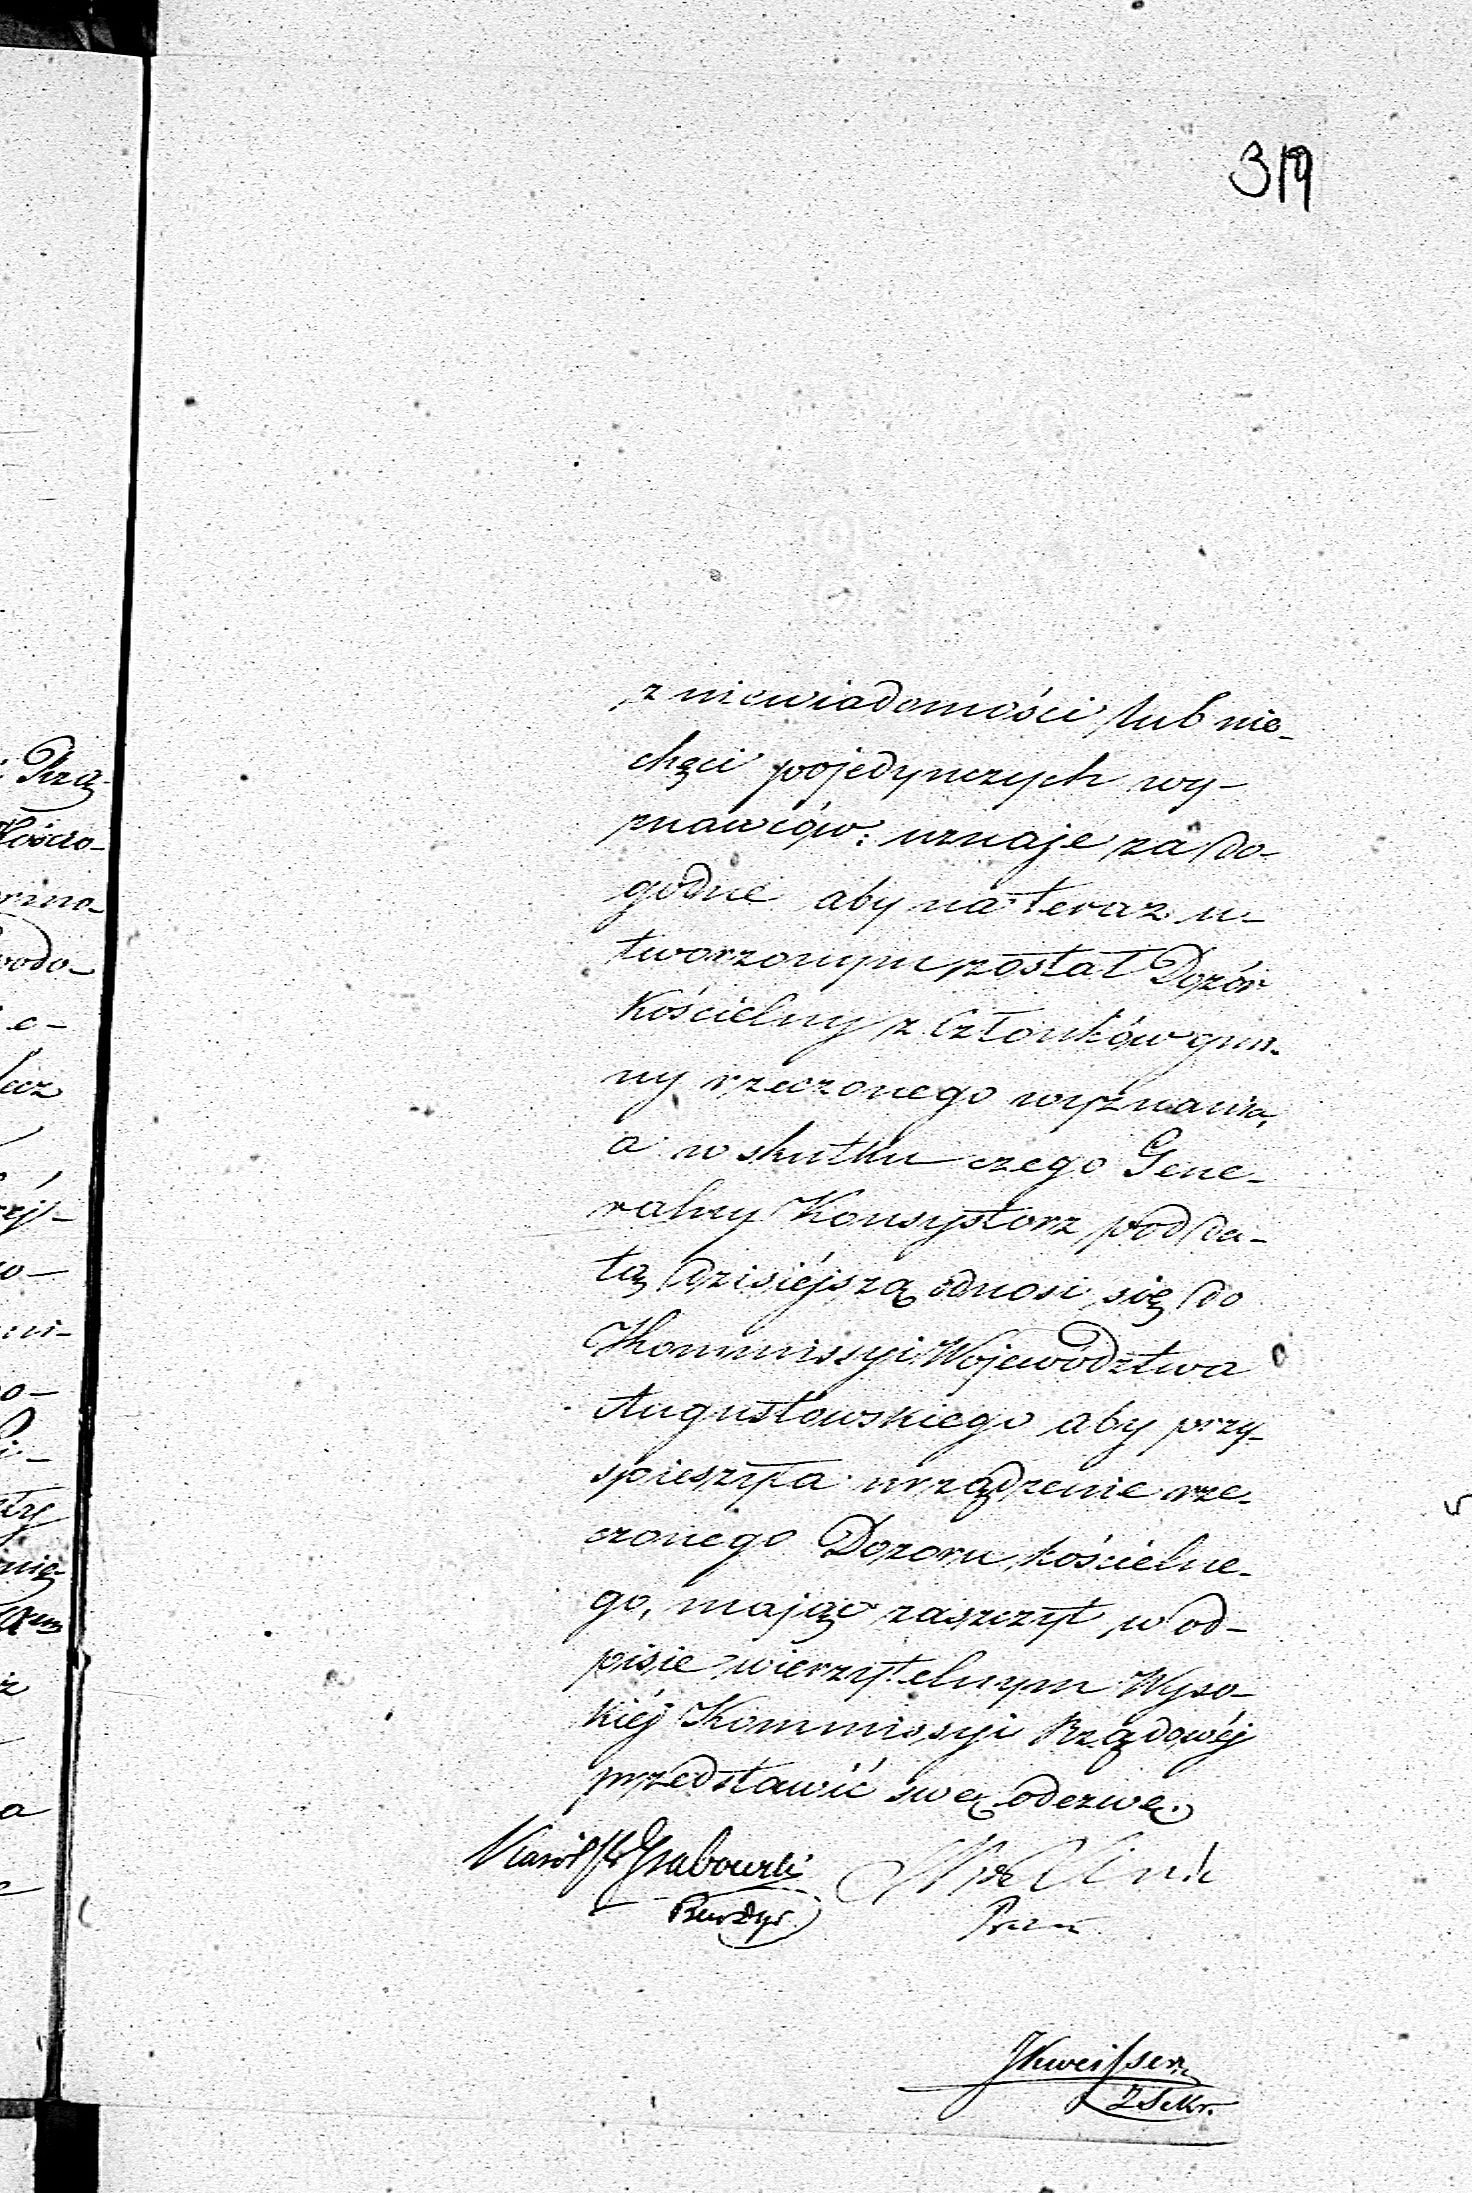 319
z niewiadomości lub nie-
chęci pojedynczych wy-
znawców: uznaje za do-
godne aby na teraz u-
tworzonym został Dozór
Kościelny z Członków gmi-
ny rzeczonego wyznania,
a w skutku czego Gene-
ralny Konsystorz pod da-
tą dzisiéjszą odnosi się do
Kommissyi Województwa
Augustowskiego aby przy-
spieszyła urządzenie rze-
czonego Dozoru kościelne-
go, mając zaszczyt w od-
pisie wierzytelnym Wyso-
kiéj Kommissyi Rządowéj
przedstawić swę odezwę.
Karól Grabowski